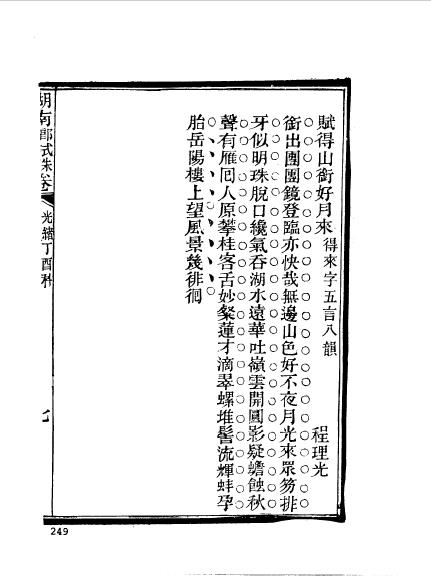 賦得山銜好月來 得來字五言八韻 程理光
銜出團團鏡登臨亦快哉無邊山色好不夜月光來眾笏排
牙似明珠脫口纔氣吞湖水遠華吐嶺雲開圓影疑蟾蝕秋
聲有雁囘人原攀桂客舌妙粲蓮才滴翠螺堆髻流輝蚌孕
胎岳陽樓上望風景幾徘徊
湖南鄉試硃卷 光緒丁酉科 七
249